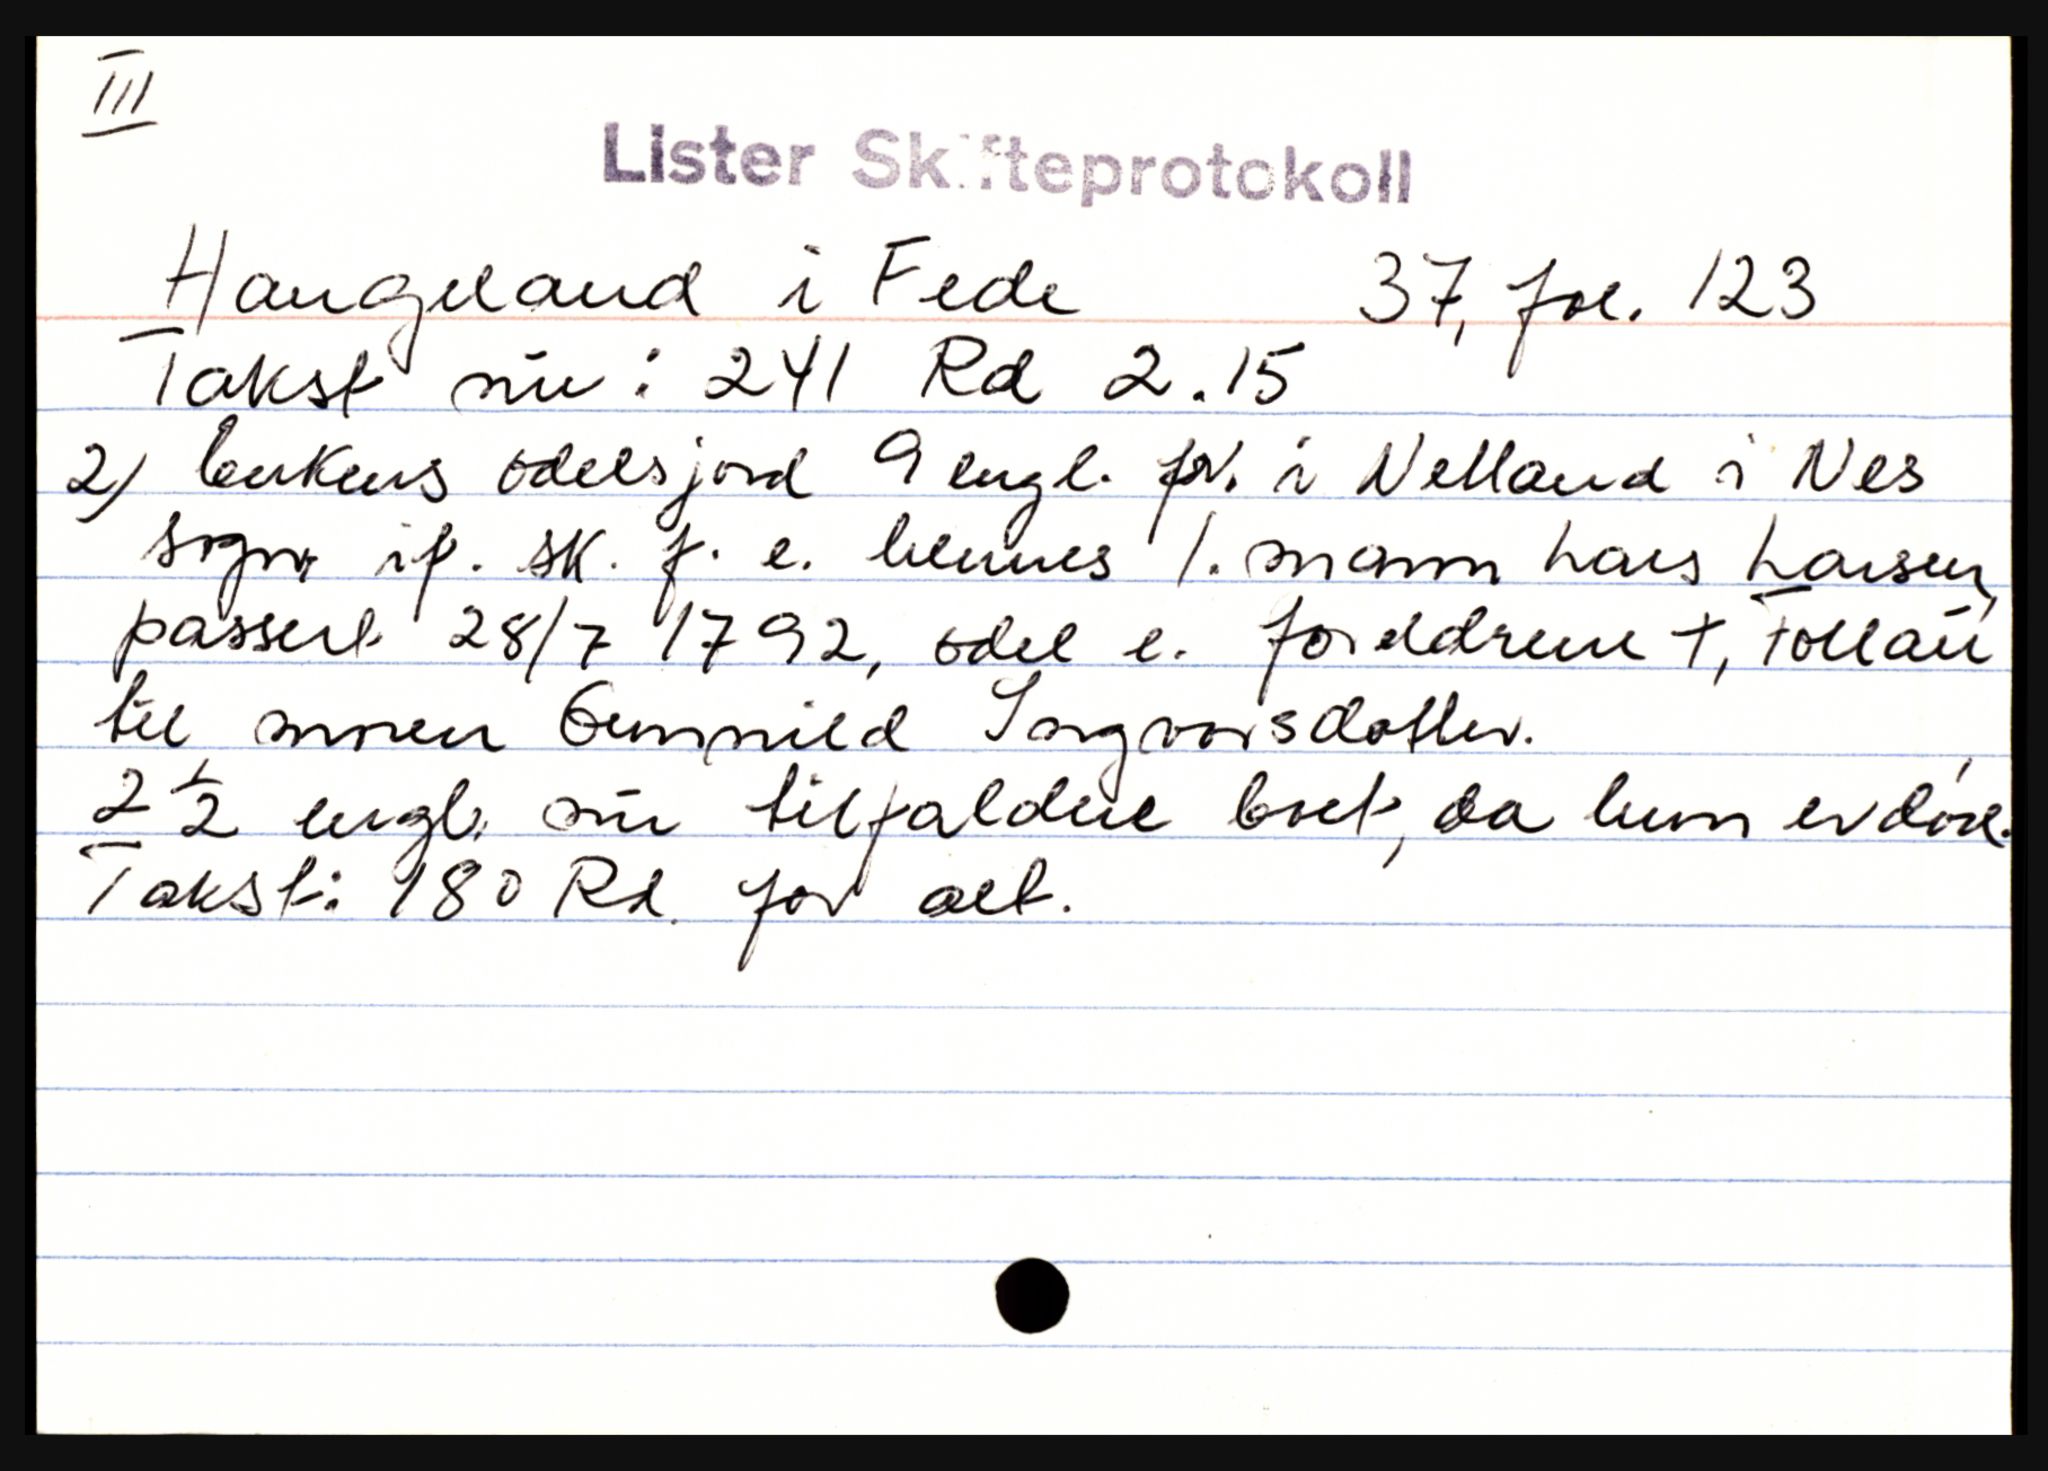 III
Lister Skifteprotokoll
Haugeland i Fede 37, fol. 123
Takst nu: 241 Rd 2.15
2) enkens odelsjord 9 engl. på i Nelland i Nes
sogn, if. sk. f. e. hennes 1. mann Lars Larsen,
passert 28/7 1792, odel e. foreldrene +, Føllau
til moren Gunnild Ingvorsdatter.
2 1/2 engl. nu tilfaldne boet, da hun er død.
Takst: 180 Rd. for alt.